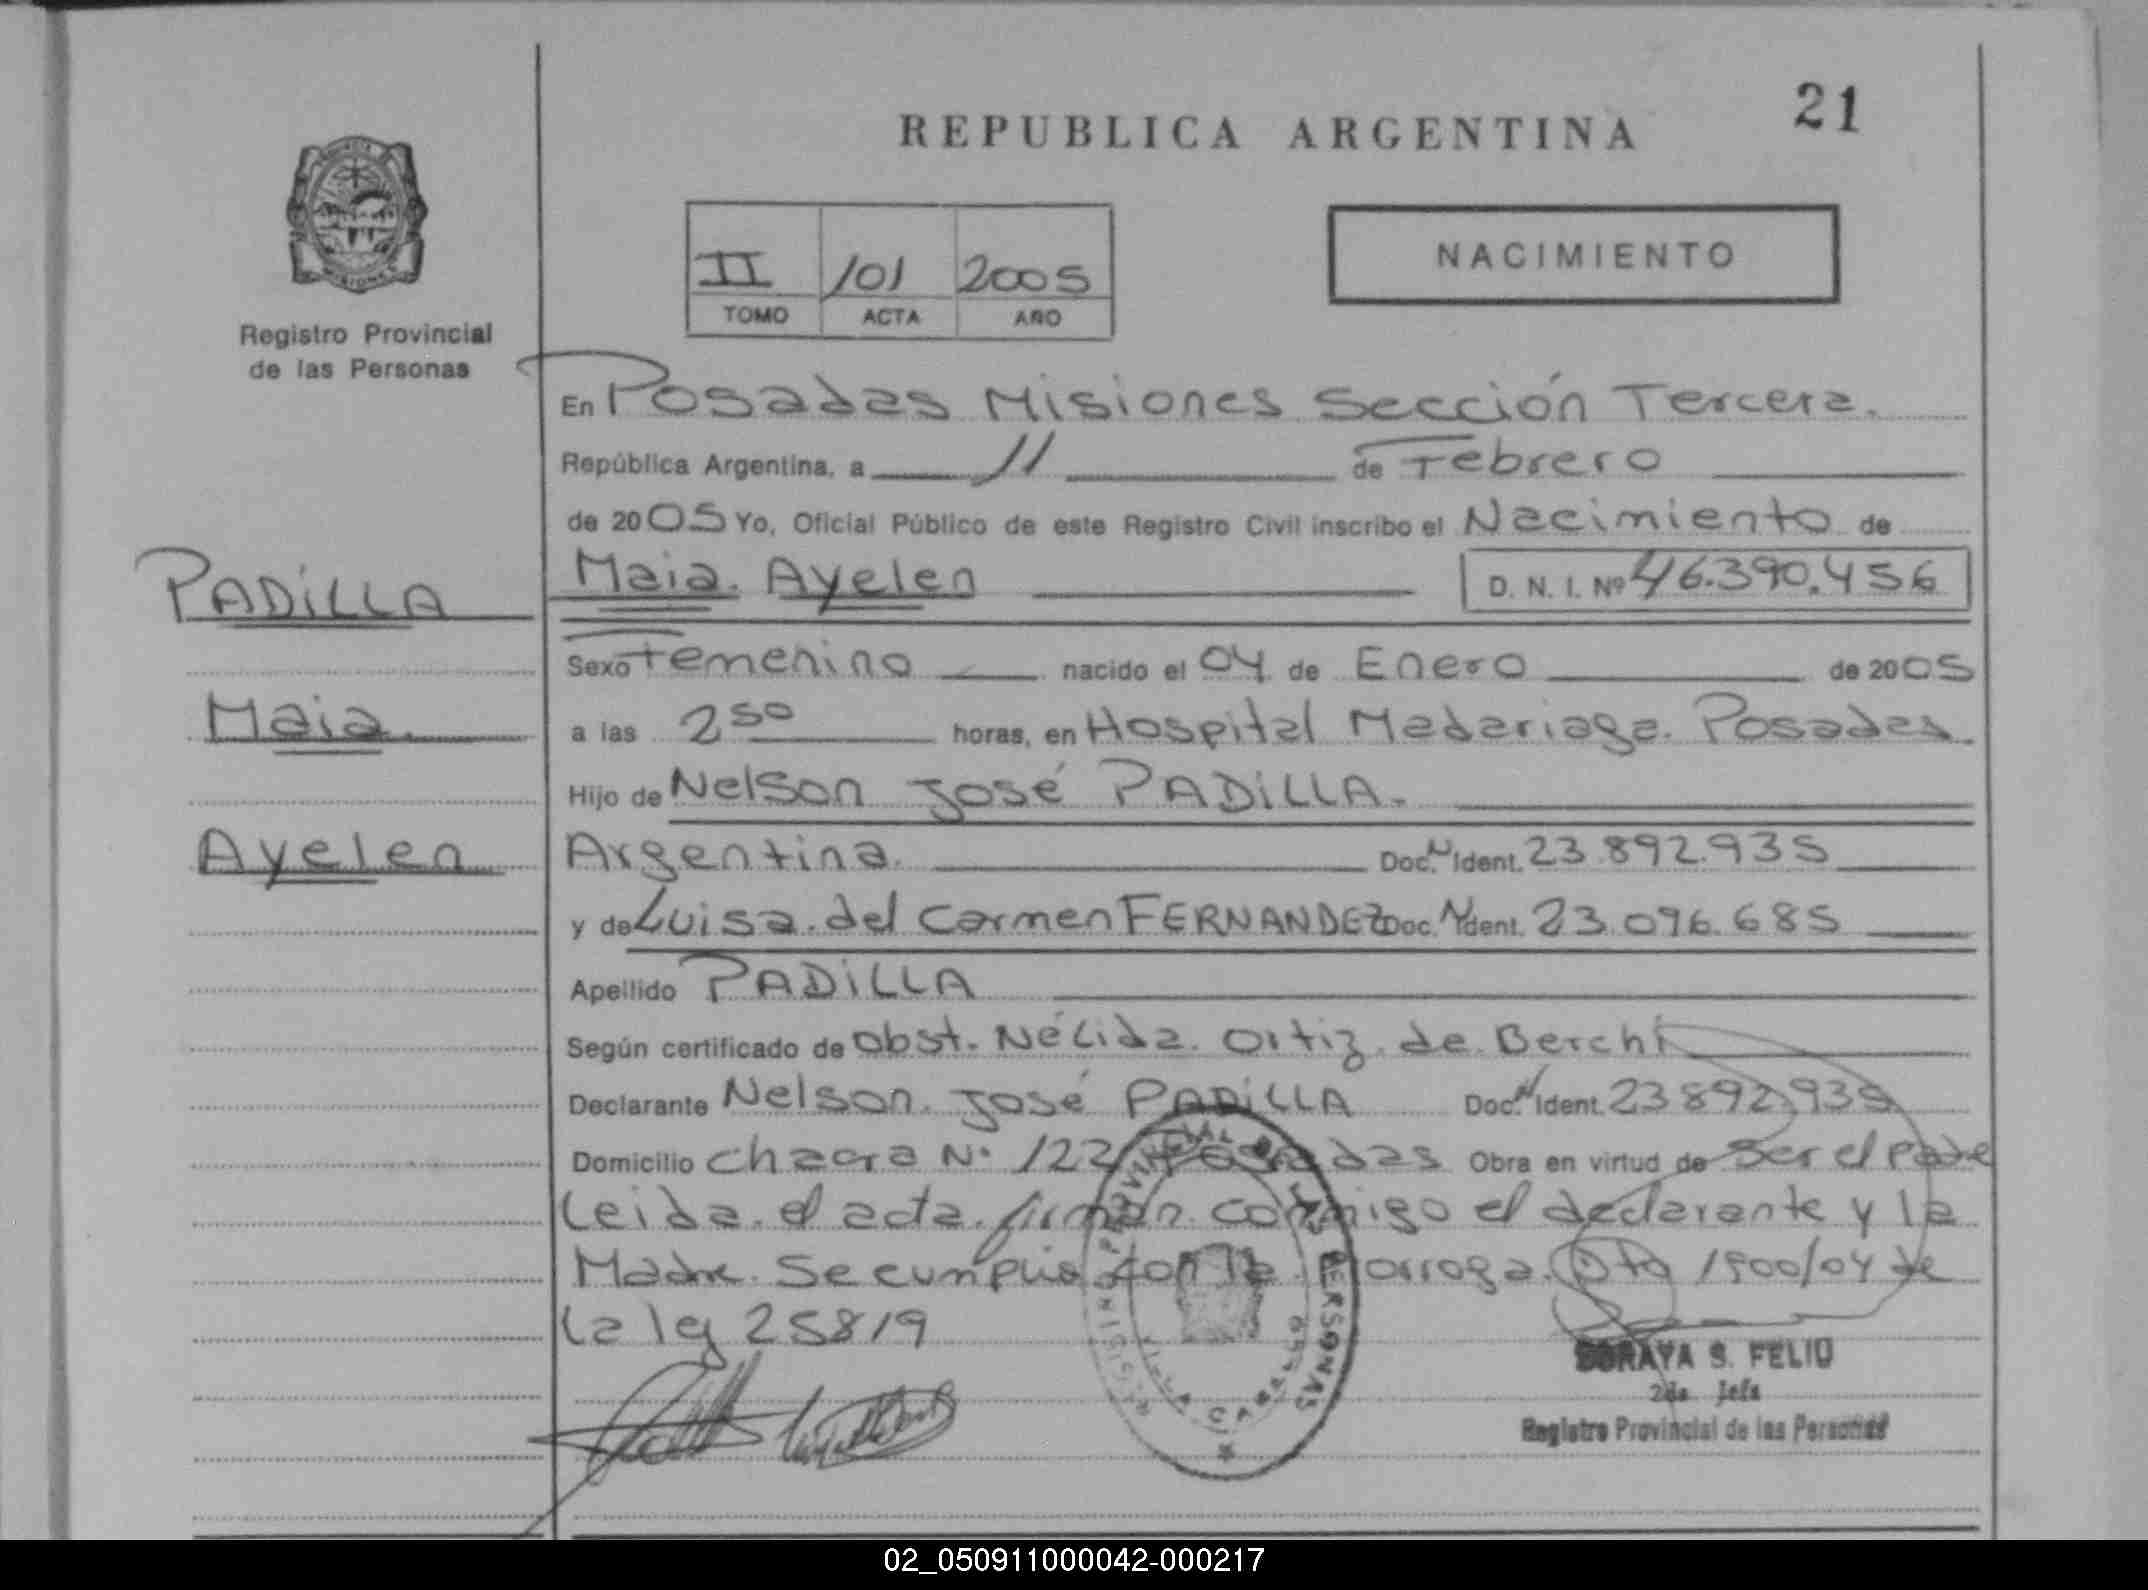 21
REPUBLICA ARGENTINA
NACIMIENTO
II 101 2005
TOMO ACTA AÑO
Registro Provincial
de las Personas
En Posadas Misiones Sección Tercera.
República Argentina, a 11 de Febrero
de 2005 Yo, Oficial Público de este Registro Civil inscribo el Nacimiento de
Maia Ayelen D. N. I. Nº 46.390.456
PADiLLA
Maia
Ayelen
Sexo Femenino nacido el 04 de Enero de 2005
a las 2 50 horas, en Hospital Madariaga. Posadas
Hijo de Nelson José PADiLLA.
Argentina. Doc. N Ident. 23.892.935
y de Luisa del Carmen FERNANDEZ Doc. N Ident. 23.096.685
Apellido PADiLLA
Según certificado de Obst. Nélida Ortiz de Berchi
Declarante Nelson José PADiLLA Doc. N Ident. 23892935
Domicilio Chacra N° 122 Posadas Obra en virtud de Ser el Padre
Leida el acta firman conmigo el declarante y la
Madre. Se cumplio con la Prorroga. Dto 1900/04 de
la ley 25819
PROVINCIAL DE LAS PERSONAS
MISIONES
VILLA CABELLO
SORAYA S. FELIU
2da. Jefa
Registro Provincial de las Personas
02_050911000042-000217